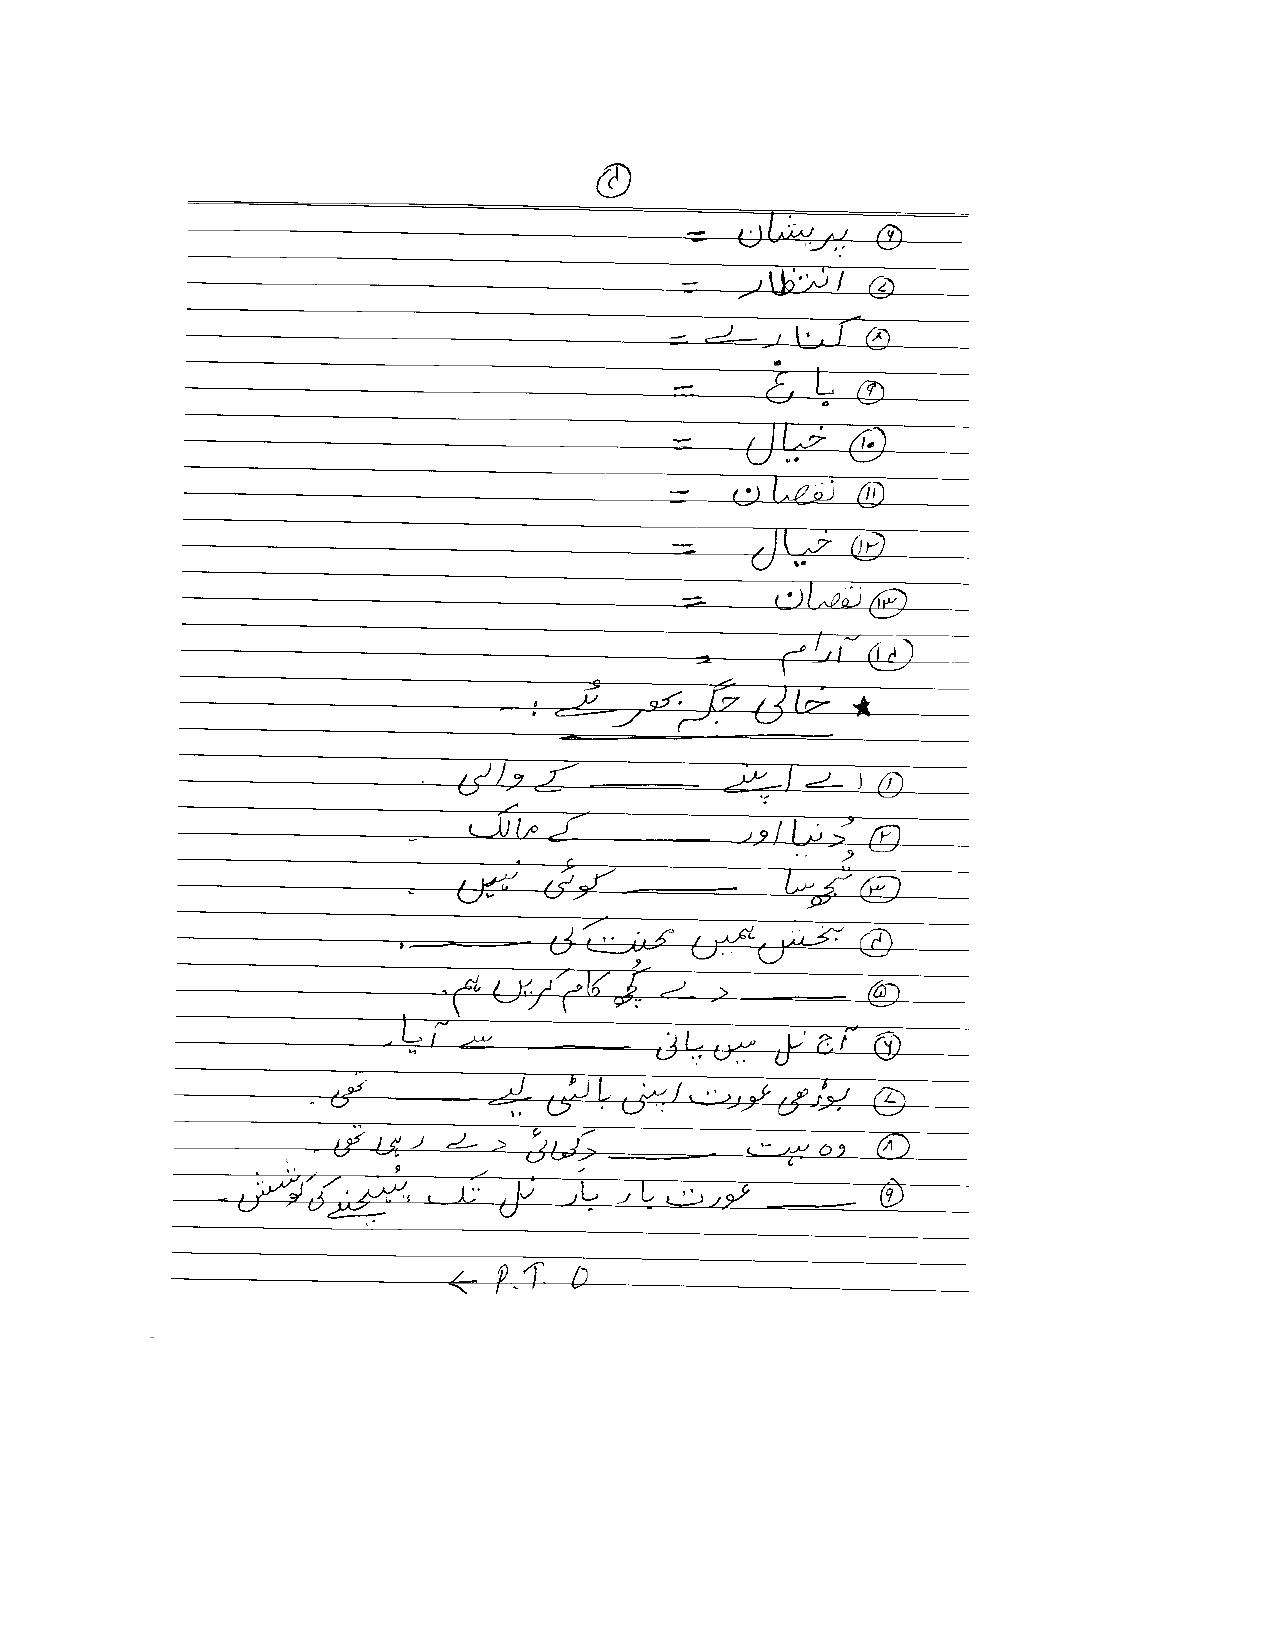 ۴
۶ پریشان =
۷ انتظار =
۸ کنارے =
۹ باغ =
۱۰ خیال =
۱۱ نقصان =
۱۲ خیال =
۱۳ نقصان =
۱۴ آرام =
★ خالی جگہ بھرئے :-
۱ اے اپنے ـــــــ کے والی ۔
۲ دُنیا اور ـــــــ کے مالک ۔
۳ تُجھ سا ـــــــ کوئی نہیں ۔
۴ بخش ہمیں محنت کی ـــــــ ۔
۵ ـــــــ دے کچُھ کام کریں ہم ۔
۶ آج نل میں پانی ـــــــ سے آیا ۔
۷ بوڑھی عورت اپنی بالٹی لیے ـــــــ تھی ۔
۸ وہ بہت ـــــــ دکھائی دے رہی تھی ۔
۹ ـــــــ عورت بار بار نل تک پہُنچنے کی کوشش ۔
P.T.O →